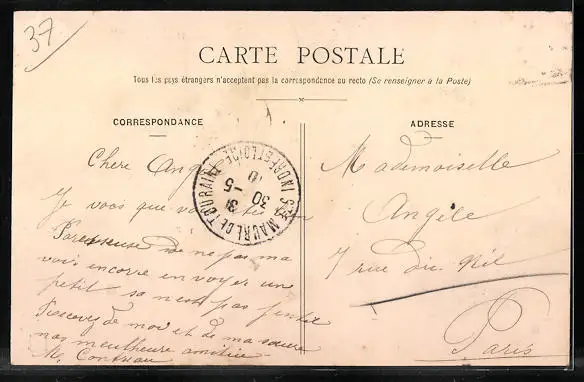 37
CARTE POSTALE
Tous les pays étrangers n'acceptent pas la correspondance au recto (Se renseigner à la Poste)
CORRESPONDANCE
ADRESSE
Chere Ang
Je vois que vous
Paresseuse de ne pas ma
voir encorre envoyer un
petit sa nest pas gentil
Recevez de moi et de ma sœure
nos meutheure amitiée
STE MAURE DE TOURAINE
INDRE ET LOIRE
31 -5
30
10
Mademoiselle
Angèle
7 rue du Nil
Paris